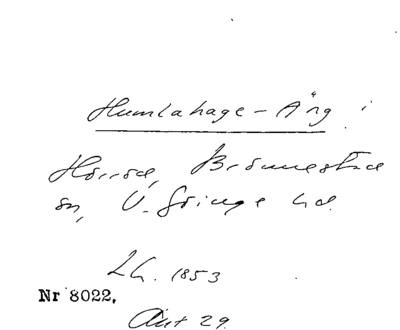 Humlahage-Äng i
Hörröd, Brönnestad
sn, V. Göinge hd.
Lh. 1853
Nr 8022,
Akt 29.